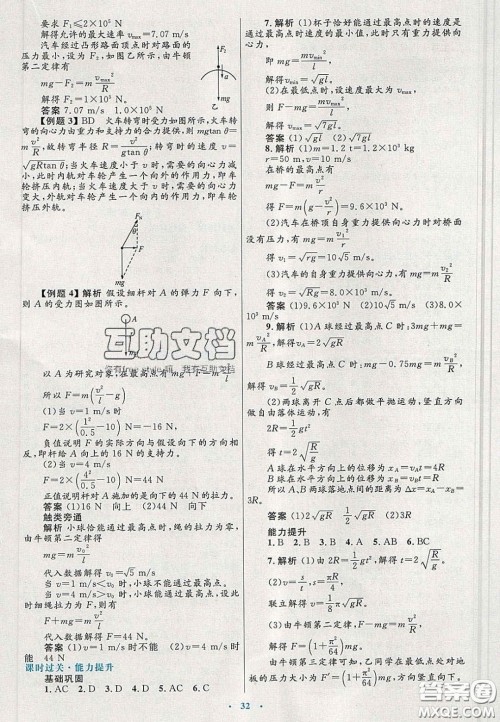 要求 F₁≤2×10⁵ N
解得允许的最大速度 vmax=7.07 m/s
汽车经过凸形路面顶点时对路面的
压力最小,设为 F₂,如图乙所示,由牛
顿第二定律有
mg-F₂=m vmax²/R
解得 F₂=1×10⁵ N
答案 7.07 m/s 1.0×10⁵ N
【例题3】BD 火车转弯时受力如图所示,火车转
弯的向心力由重力和支持力的合力提供,则 mgtan θ=
m v²/R,故转弯半径 R=
√gRtan θ;当火车速度小于 v 时,需要的向心力减
小,此时内轨对车轮产生一个向外的作用力,即车
轮挤压内轨;当火车速度大于 v 时,需要的向心力
变大,外轨对车轮产生一个向里的作用力,即车
轮挤压外轨。
F_N
F
mg
【例题4】解析 假设细杆对 A 的弹力 F 向下,
则 A 的受力图如图所示。
互助文档
我有互助文档
以 A 为研究对象,在最高点有 mg+F=m v²/l
所以 F=m(v²/l-g)
(1)当 v=1 m/s 时
F=2×(1²/0.5-10) N=-16 N
负值说明 F 的实际方向与假设向下的方向相
反,即杆给 A 向上的 16 N 的支持力。
(2)当 v=4 m/s 时
F=2×(4²/0.5-10) N=44 N
正值说明杆对 A 施加的是向下的 44 N 的拉力。
答案 (1)16 N 向上 (2)44 N 向下
触类旁通
解析 小球恰能通过最高点时,绳的拉力为零,
由牛顿第二定律得
mg=m v₀²/l
代入数据解得 v₀=√5 m/s
当 v=1 m/s<v₀ 时,小球不能通过最高点。
当 v=4 m/s>v₀ 时,小球能通过最高点,此时
设细绳拉力为 F,则有
F+mg=m v²/l
代入数据解得 F=44 N
答案 (1)当 v=1 m/s 时不能 (2)当 v=4 m/s 时
能 44 N
课时过关·能力提升
基础巩固
1. AC 2. D 3. D 4. D 5. AC 6. AC
7. 解析 (1)杯子恰好能通过最高点时的速度是
通过最高点时速度的最小值,此时只有重力提供向
心力,由 mg=m vmin²/l
解得 vmin=√gl
(2)由牛顿第二定律得
F-mg=m vmax²/l
则 7mg=m vmax²/l
解得 vmax=√7gl
答案 (1)√gl (2)√7gl
8. 解析 (1)m=1.2 t=1.2×10³ kg
r=50 m,v=10 m/s
在桥的最高点
mg-F=m v²/r
得 F=mg-m v²/r=9.6×10³ N
(2)汽车在桥顶自身重力提供向心力时对桥面
没有压力,有 mg=m v₁²/r
得 v₁=√rg=10√5 m/s
(3)汽车的重力提供向心力,有 mg=m v₂²/R
得 v₂=√Rg=8.0×10³ m/s
答案 (1)9.6×10³ N (2)10√5 m/s (3)8.0×
10³ m/s
9. 解析 (1)A 球经过最高点 C 时:3mg+mg=
m vA²/R,解得 vA=2√gR
B 球经过最高点 C 时:mg-0.75mg=m vB²/R,
解得 vB=½√gR
(2)两球离开 C 点后都做平抛运动,竖直方向
做自由落体运动,有 2R=½gt²
得 t=2√(R/g)
A 球在水平方向上的位移为 xA=vAt=4R
B 球在水平方向上的位移为 xB=vBt=R
A、B 两球落地点间的距离为 Δx=xA-xB=
3R。
答案 (1)2√gR ½√gR (2)3R
能力提升
1. D 2. B 3. A 4. B 5. AC 6. BC
7. 解析 (1)由 2R=½gt²,解得 t=2√(R/g)
(2)由 v=s/t,s=πR/4,
联立解得 v=
(3)由牛顿第二定律,有 F-mg=m v²/R
解得 F=(1+π²/64)mg
由牛顿第三定律知,小球在最低点对轨道的压
力大小为(1+π²/64)mg,方向竖直向下。
32
答案圈
MXQE.COM